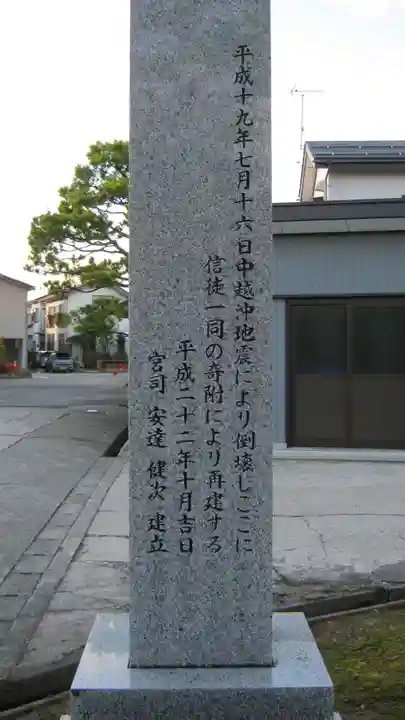 平成十九年七月十六日中越沖地震により倒壊しここに
信徒一同の寄附により再建する
平成二十二年十月吉日
宮司 安達 健次 建立